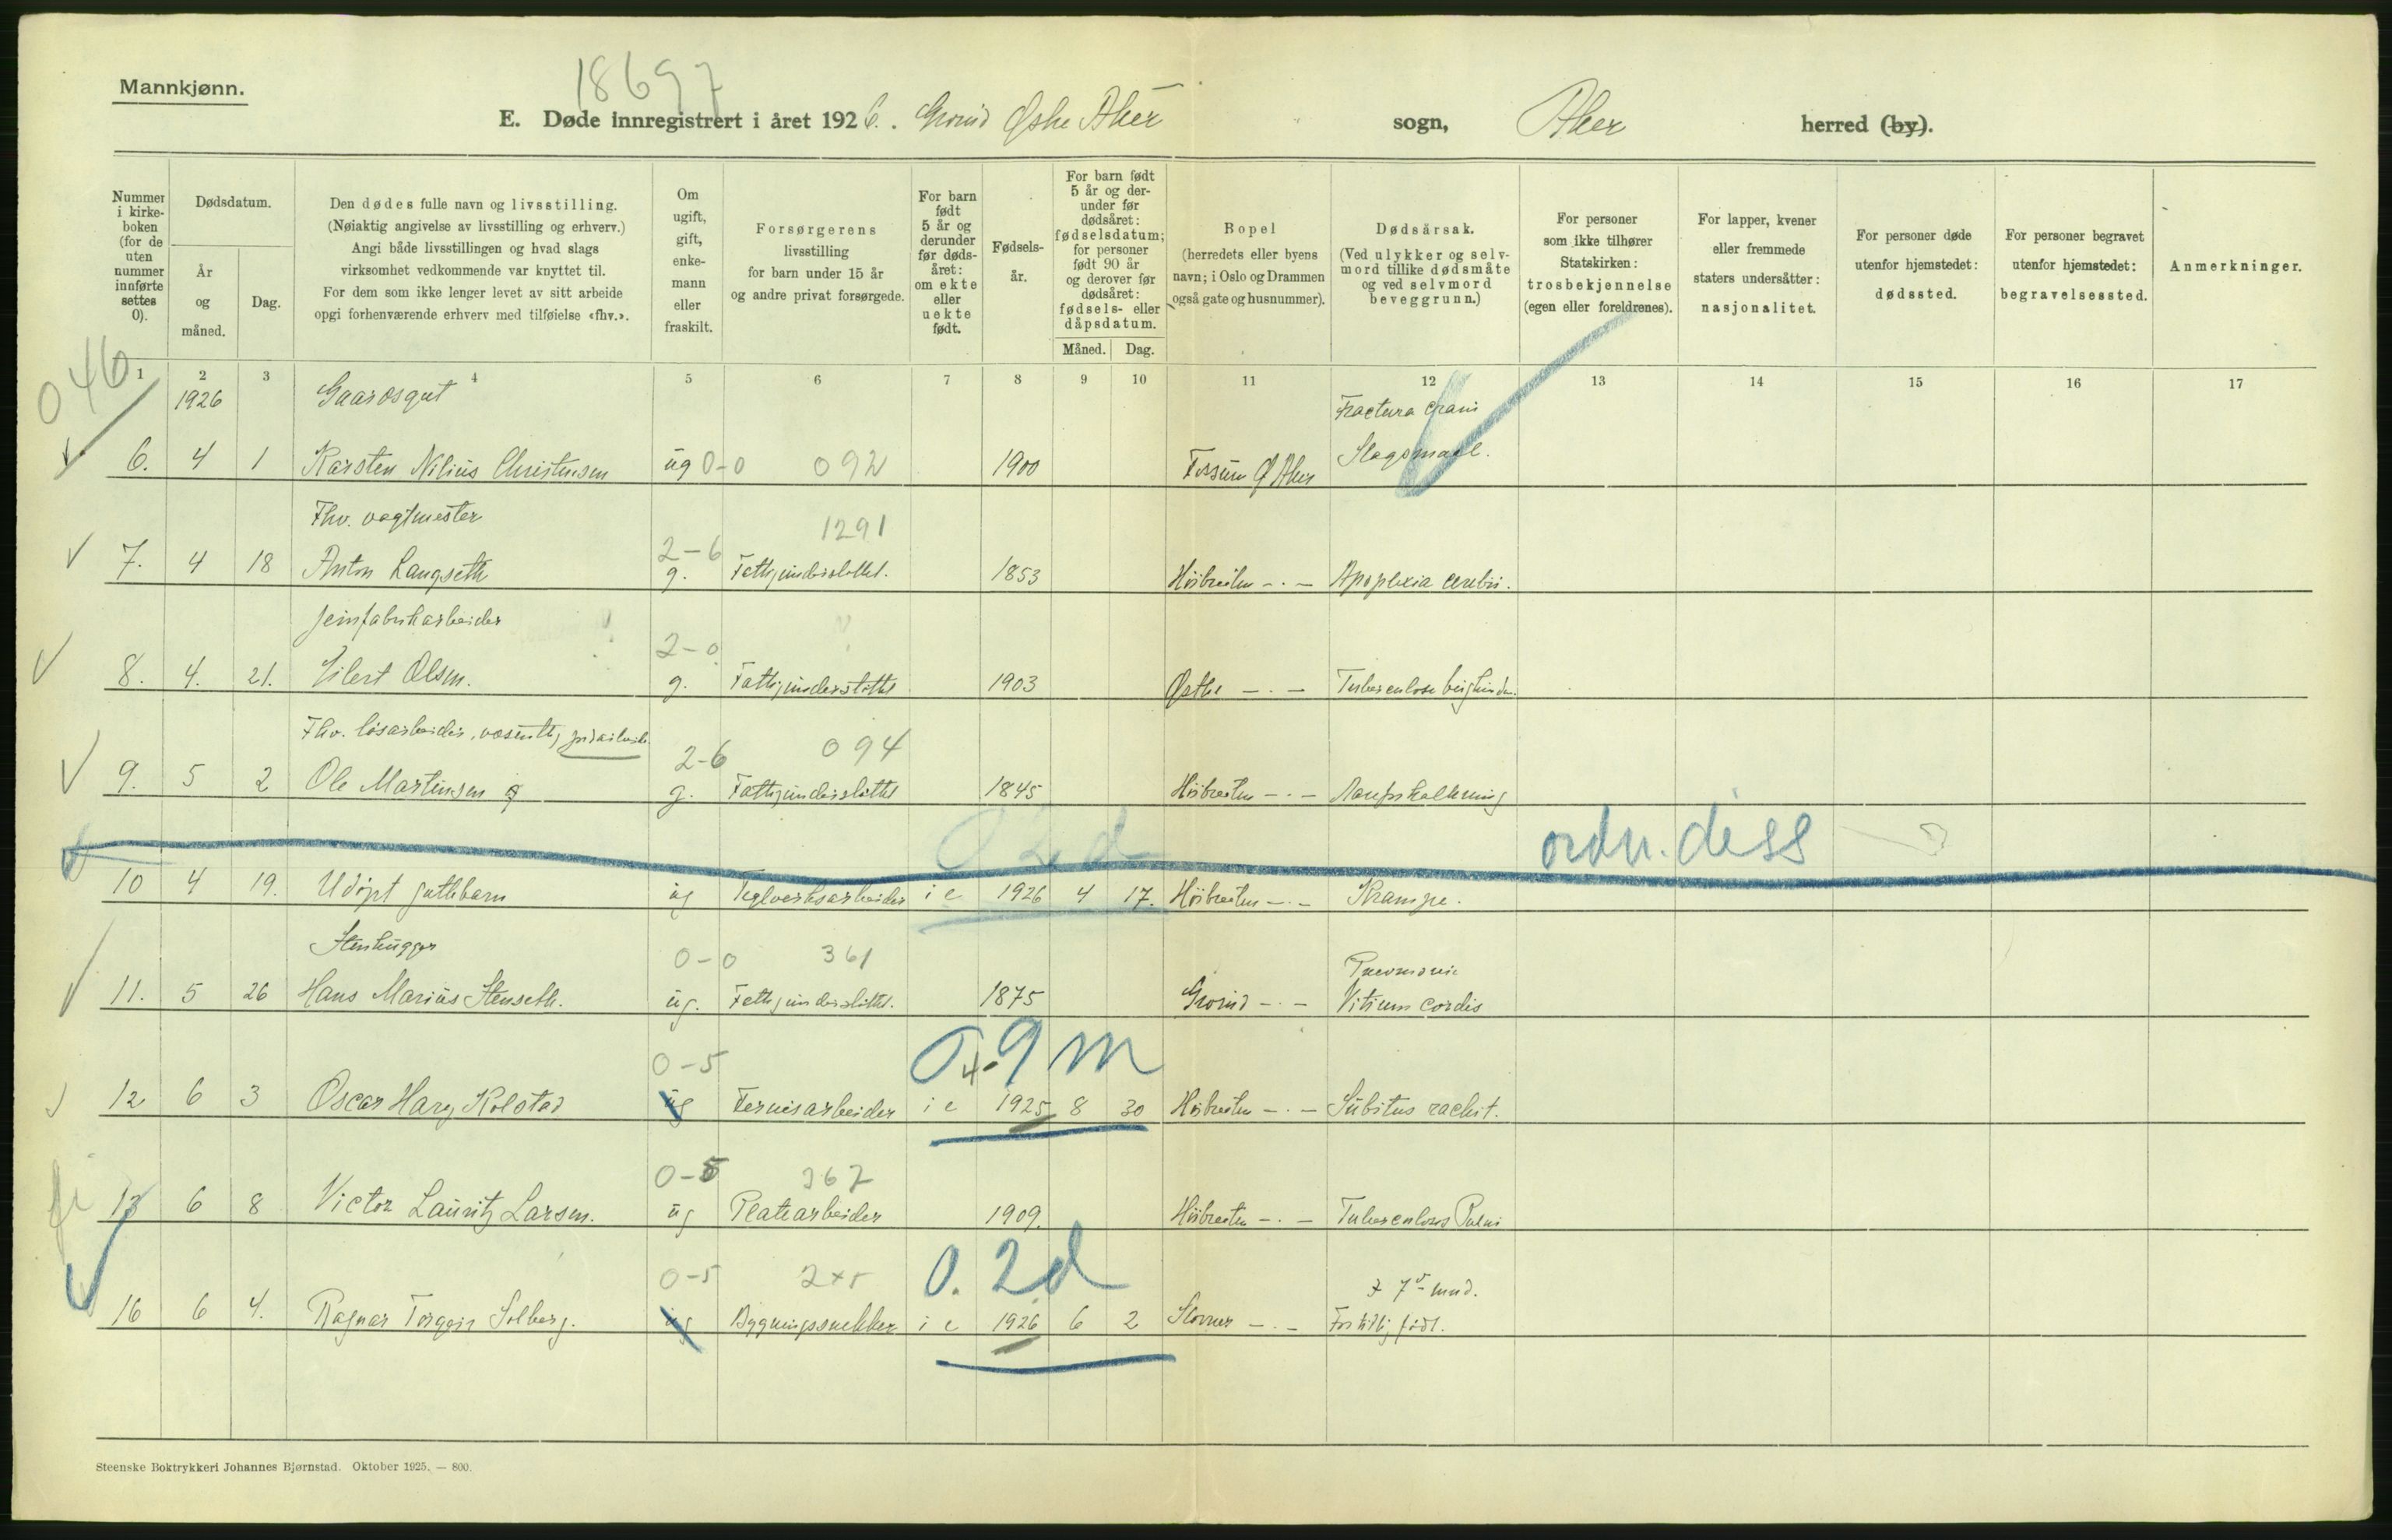 18697
Mannkjønn.
E. Døde innregistrert i året 1926. Grorud Østre Aker sogn, Aker herred (by).
Nummer i kirkeboken (for de uten nummer innførte settes 0).
Dødsdatum.
År og måned.
Dag.
Den dødes fulle navn og livsstilling.
(Nøiaktig angivelse av livsstilling og erhverv.)
Angi både livsstillingen og hvad slags
virksomhet vedkommende var knyttet til.
For dem som ikke lenger levet av sitt arbeide
opgi forhenværende erhverv med tilføielse «fhv.».
Om ugift, gift, enkemann eller fraskilt.
Forsørgerens
livsstilling
for barn under 15 år
og andre privat forsørgede.
For barn født 5 år og derunder før dødsåret: om ekte eller uekte født.
Fødselsår.
For barn født 5 år og derunder før dødsåret: fødselsdatum; for personer født 90 år og derover før dødsåret: fødsels- eller dåpsdatum.
Måned. Dag.
Bopel
(herredets eller byens
navn; i Oslo og Drammen
også gate og husnummer).
Dødsårsak.
(Ved ulykker og selvmord tillike dødsmåte og ved selvmord beveggrunn.)
For personer
som ikke tilhører
Statskirken:
trosbekjennelse
(egen eller foreldrenes).
For lapper, kvener
eller fremmede
staters undersåtter:
nasjonalitet.
For personer døde
utenfor hjemstedet:
dødssted.
For personer begravet
utenfor hjemstedet:
begravelsessted.
Anmerkninger.
1 2 3 4 5 6 7 8 9 10 11 12 13 14 15 16 17
046
1926 Gaardsgut Fractura crani
6. 4 1 Karsten Nilius Christensen ug 0-0 092 1900 Fossum Ø Aker Slagsmaal.
Fhv. vagtmester 1291
2-6
7. 4 18 Anton Langseth g. Fattigunderstøttet. 1853 Høibraaten -.- Apoplexia cerebri.
2-0
8. 4. 21. Eilert Olsen. g. Fattigunderstøttet 1903 Østre -.- Tuberculose
Fhv. løsarbeider, væsentlig jordarbeide
2-6 094
9. 5 2 Ole Martinsen g. Fattigunderstøttet 1845 Høibraaten -.- Aareforkalkning
0 2 d ordn. diss
10 4 19. Udøpt guttebarn ug Teglverksarbeider i e 1926 4 17. Høibraaten -.- Krampe.
Stenhugger 0-0 361 Pneumonie
11. 5 26 Hans Marius Stenseth. ug. Fattigunderstøttet. 1875 Grorud -.- Vitium cordis
0-5 0.9 m
4
12 6 3 Oscar Harry Kolstad ug Fernisarbeider i e 1925 8 30 Høibraaten -.- Subitus rachit.
0-5 367
13 6 8 Victor Lauritz Larsen. ug Platearbeider 1909. Høibraaten -.- Tuberculosis Pulm
0-5 0. 2d 7 mnd.
16 6 4. Ragnar Torgeir Solberg. ug Bygningssnekker i e 1926 6 2 Stovner -.- For tidlig født.
Steenske Boktrykkeri Johannes Bjørnstad. Oktober 1925. — 800.